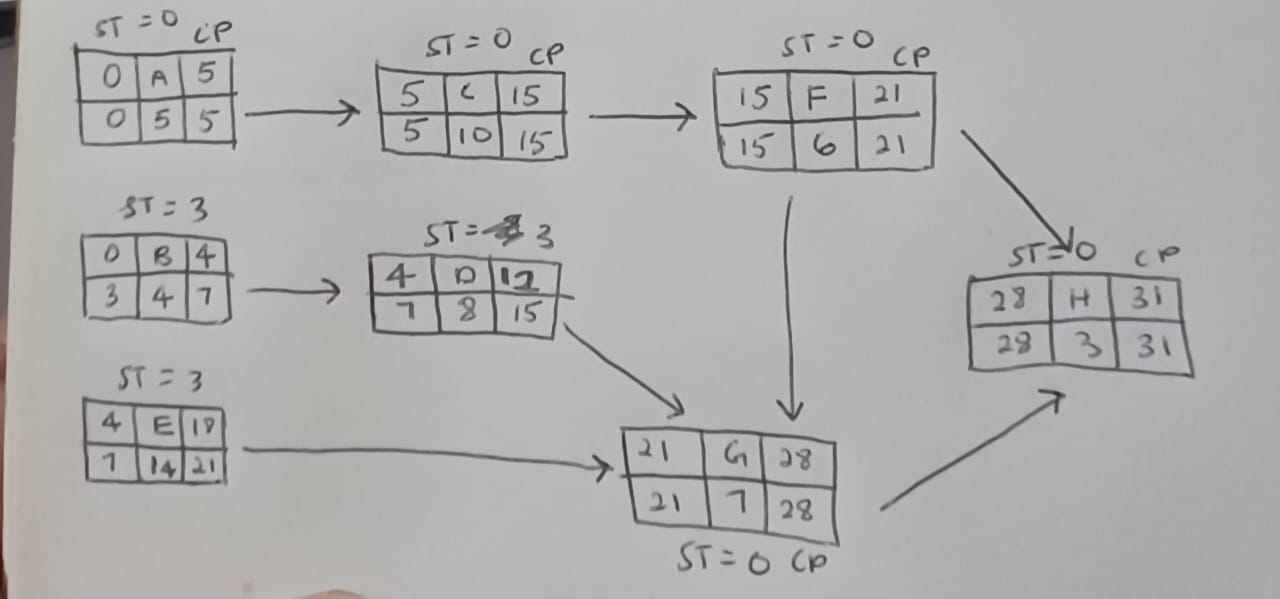 ST = 0 CP
0 A 5
0 5 5
ST = 0 CP
5 C 15
5 10 15
ST = 0 CP
15 F 21
15 6 21
ST = 3
0 B 4
3 4 7
ST = 3
4 D 12
7 8 15
ST = 0 CP
28 H 31
28 3 31
ST = 3
4 E 18
7 14 21
21 G 28
21 7 28
ST = 0 CP